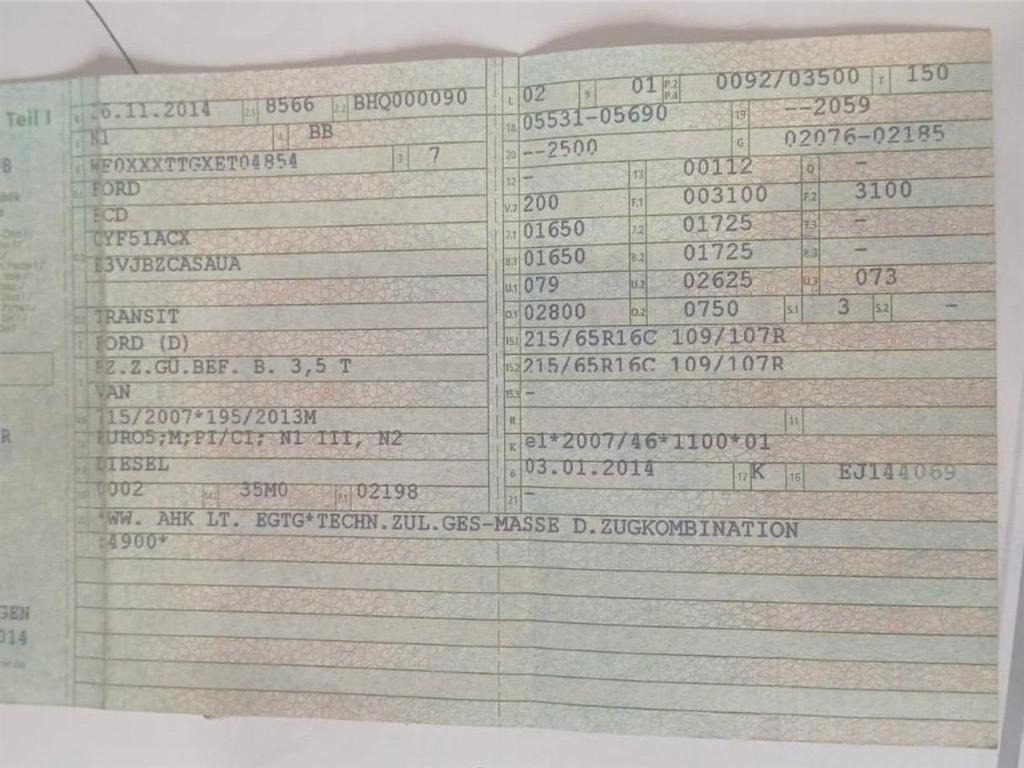 Teil I
26.11.2014 2.1 8566 2.2 BHQ000090
N1 4 BB
WF0XXXTTGXET04854 3 7
FORD
FCD
CYF51ACX
E3VJBZCASAUA
TRANSIT
FORD (D)
FZ.Z.GÜ.BEF. B. 3,5 T
VAN
715/2007*195/2013M
EURO5;M;PI/CI; N1 III, N2
DIESEL
0002 35M0 P.1 02198
L 02 9 01 P.2 P.4 0092/03500 T 150
18 05531-05690 19 --2059
20 --2500 G 02076-02185
12 - 13 00112 Q -
V.7 200 F.1 003100 F.2 3100
7.1 01650 7.2 01725 7.3 -
8.1 01650 8.2 01725 8.3 -
U.1 079 U.2 02625 U.3 073
O.1 02800 O.2 0750 S.1 3 S.2 -
15.1 215/65R16C 109/107R
15.2 215/65R16C 109/107R
15.3 -
R 11
K e1*2007/46*1100*01
6 03.01.2014 17 K 16 EJ144069
21 -
*WW. AHK LT. EGTG*TECHN.ZUL.GES-MASSE D.ZUGKOMBINATION
:4900*
8
R
GEN
014